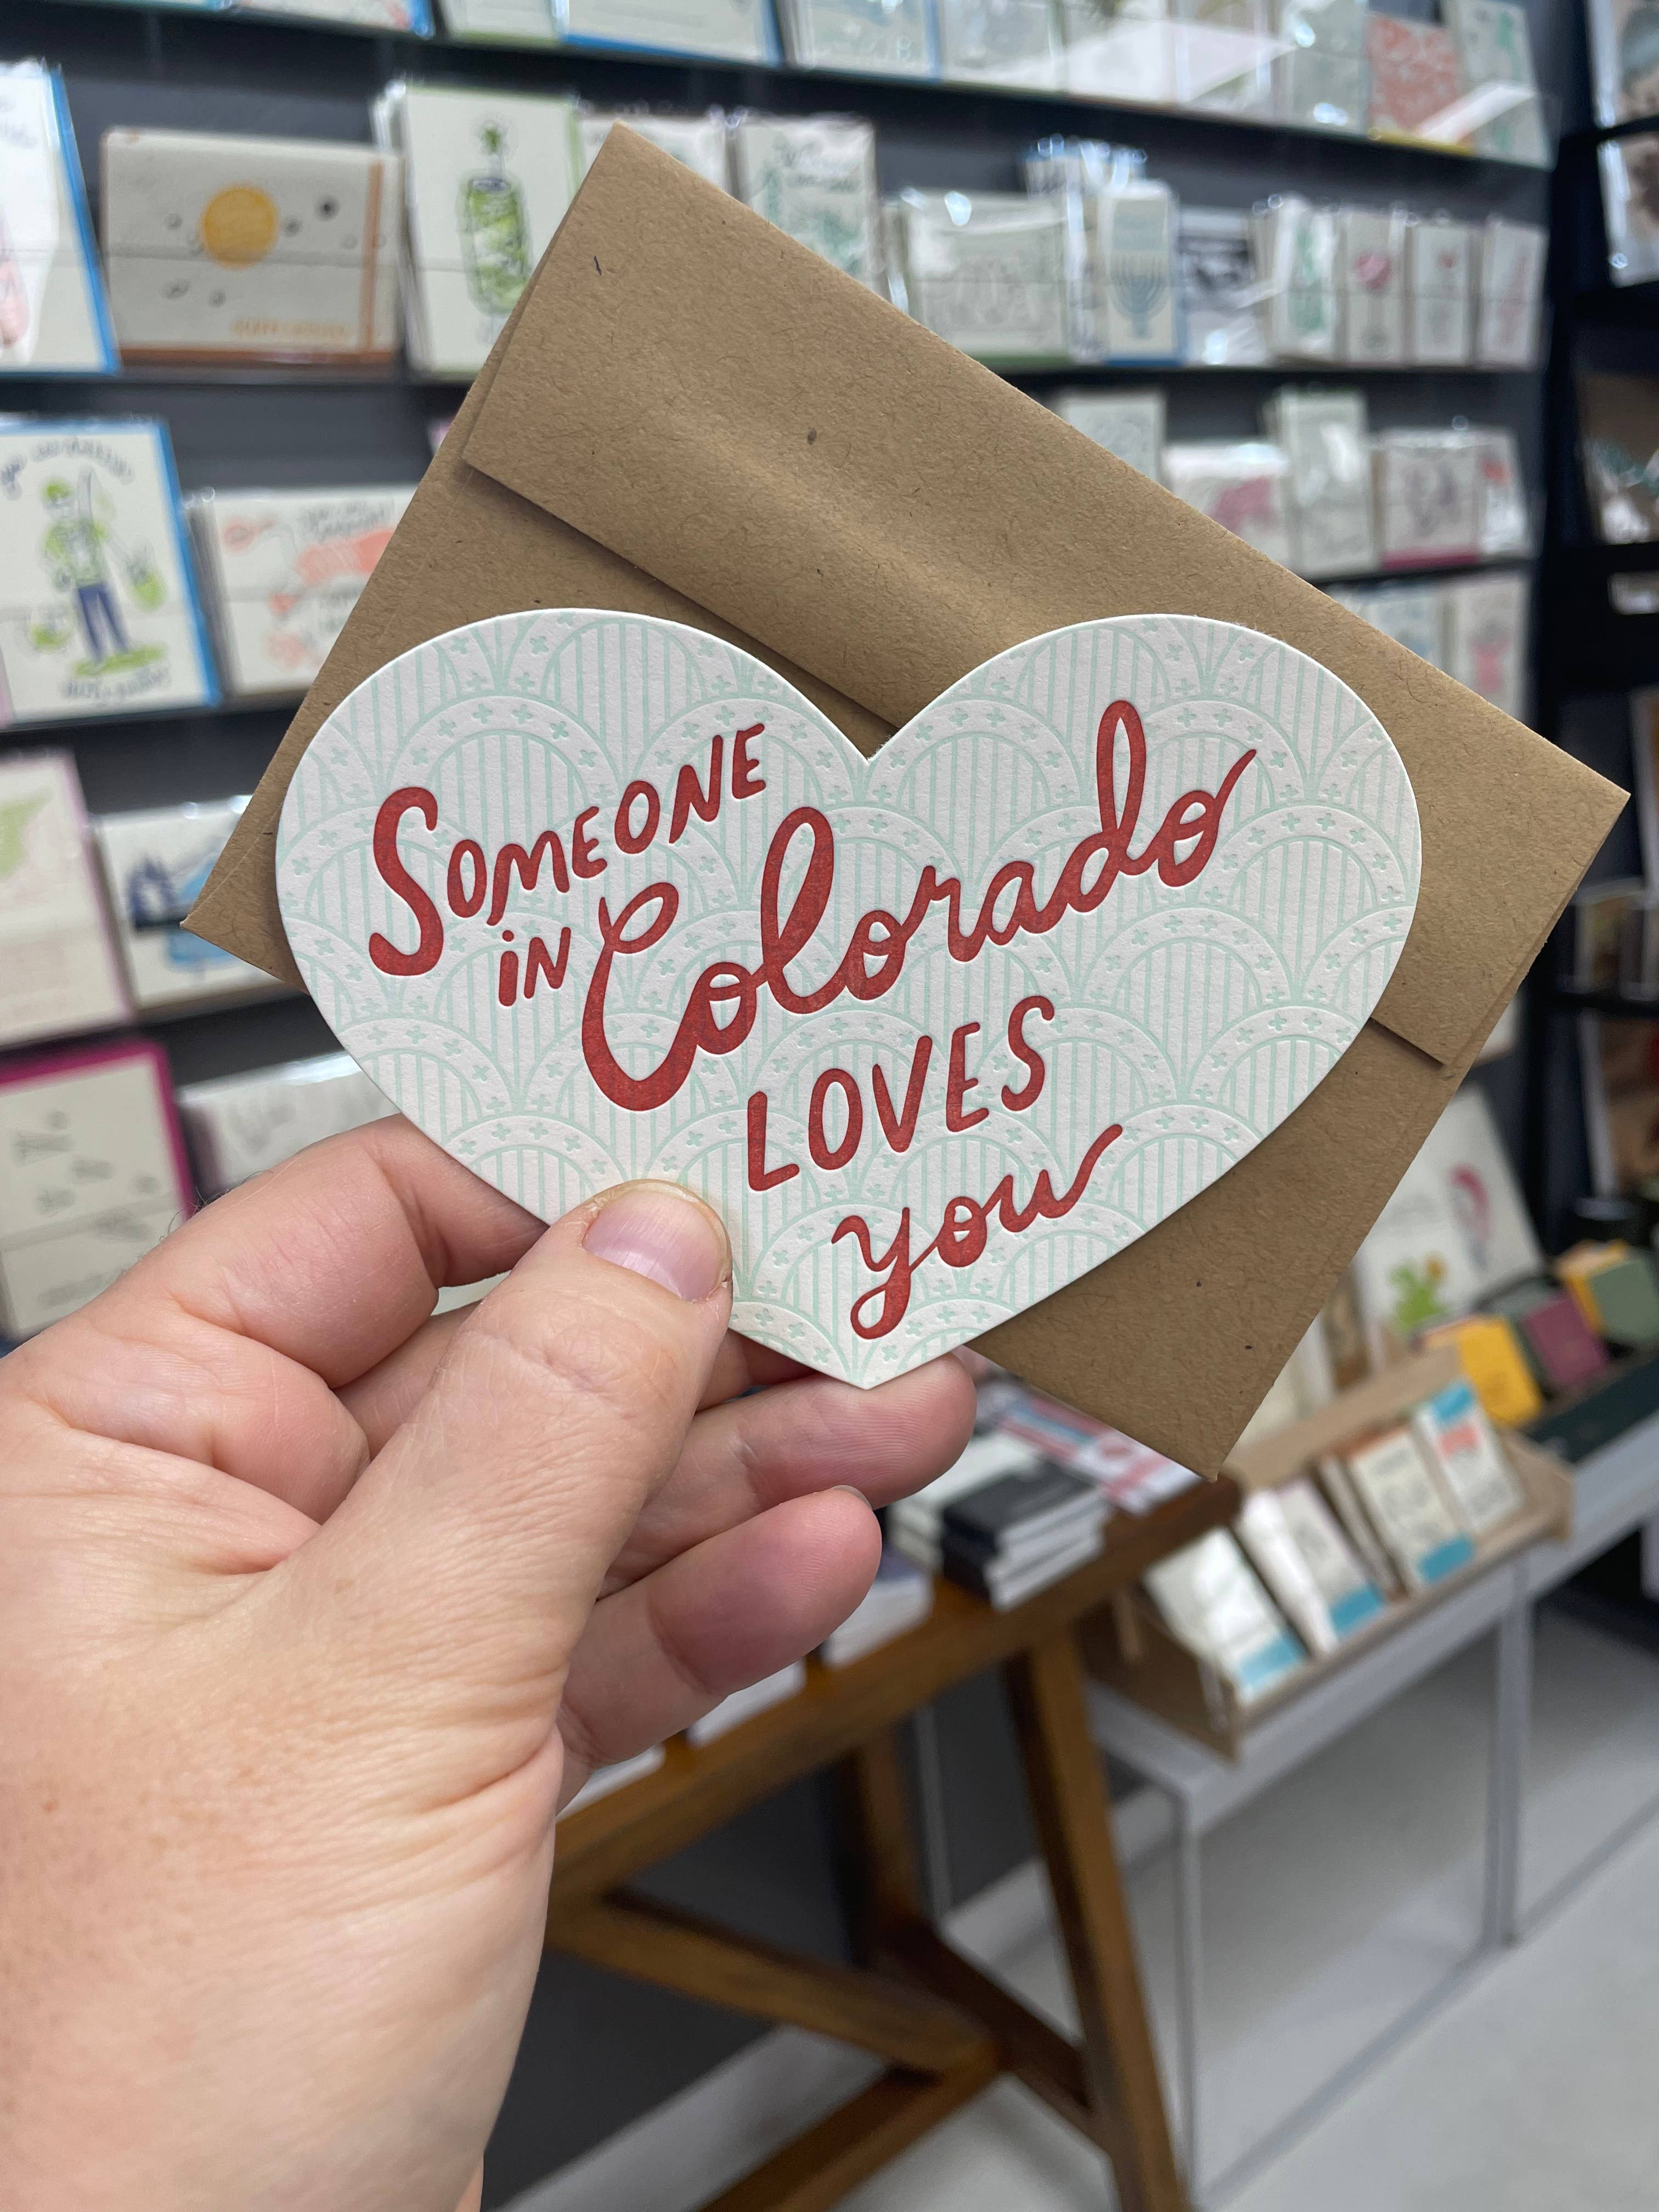 SOMEONE
in Colorado
LOVES
you